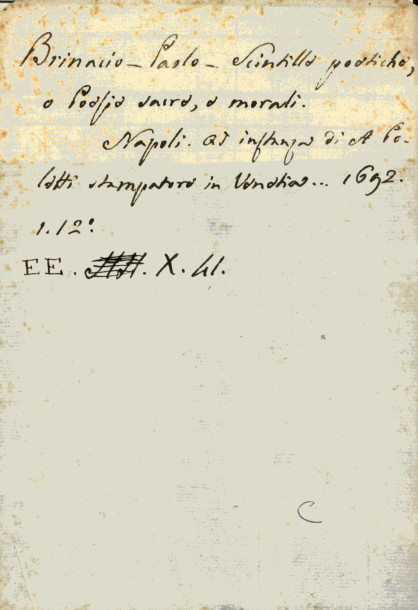 Brinacio – Paolo – Scintille poetiche,
o Poesie sacre, e morali.
Napoli. ad instanza di A Po-
letti stampatore in Venetia... 1692.
1. 12°.
EE. X. 41.
C